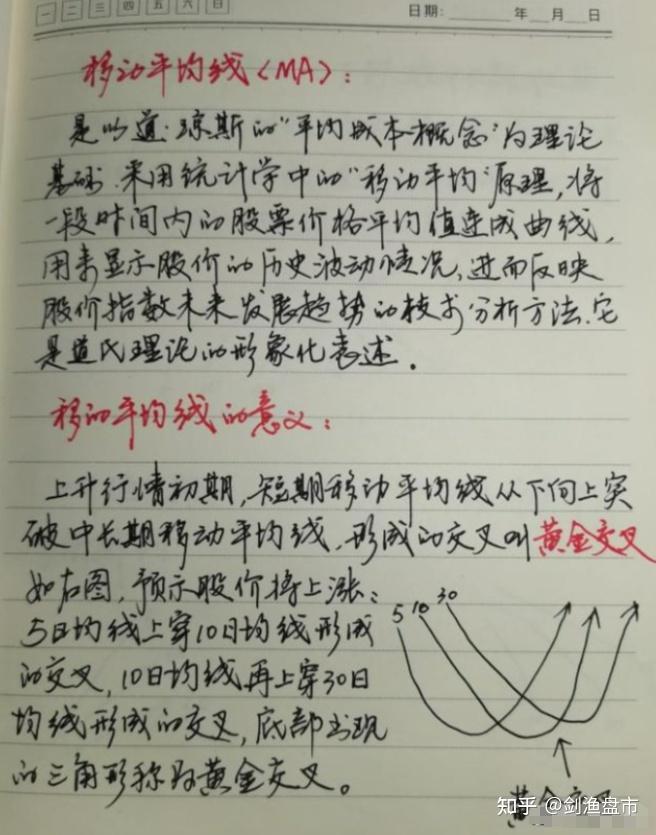 一 二 三 四 五 六 日
日期: 年 月 日
移动平均线(MA):
是以道·琼斯的“平均成本概念”为理论
基础,采用统计学中的“移动平均”原理,将
一段时间内的股票价格平均值连成曲线,
用来显示股价的历史波动情况,进而反映
股价指数未来发展趋势的技术分析方法.它
是道氏理论的形象化表述.
移动平均线的意义:
上升行情初期,短期移动平均线从下向上突
破中长期移动平均线,形成的交叉叫黄金交叉
如右图,预示股价将上涨:
5 10 30
5日均线上穿10日均线形成
的交叉,10日均线再上穿30日
均线形成的交叉,底部出现
的三角形称为黄金交叉。
黄金交叉
知乎 @剑渔盘市